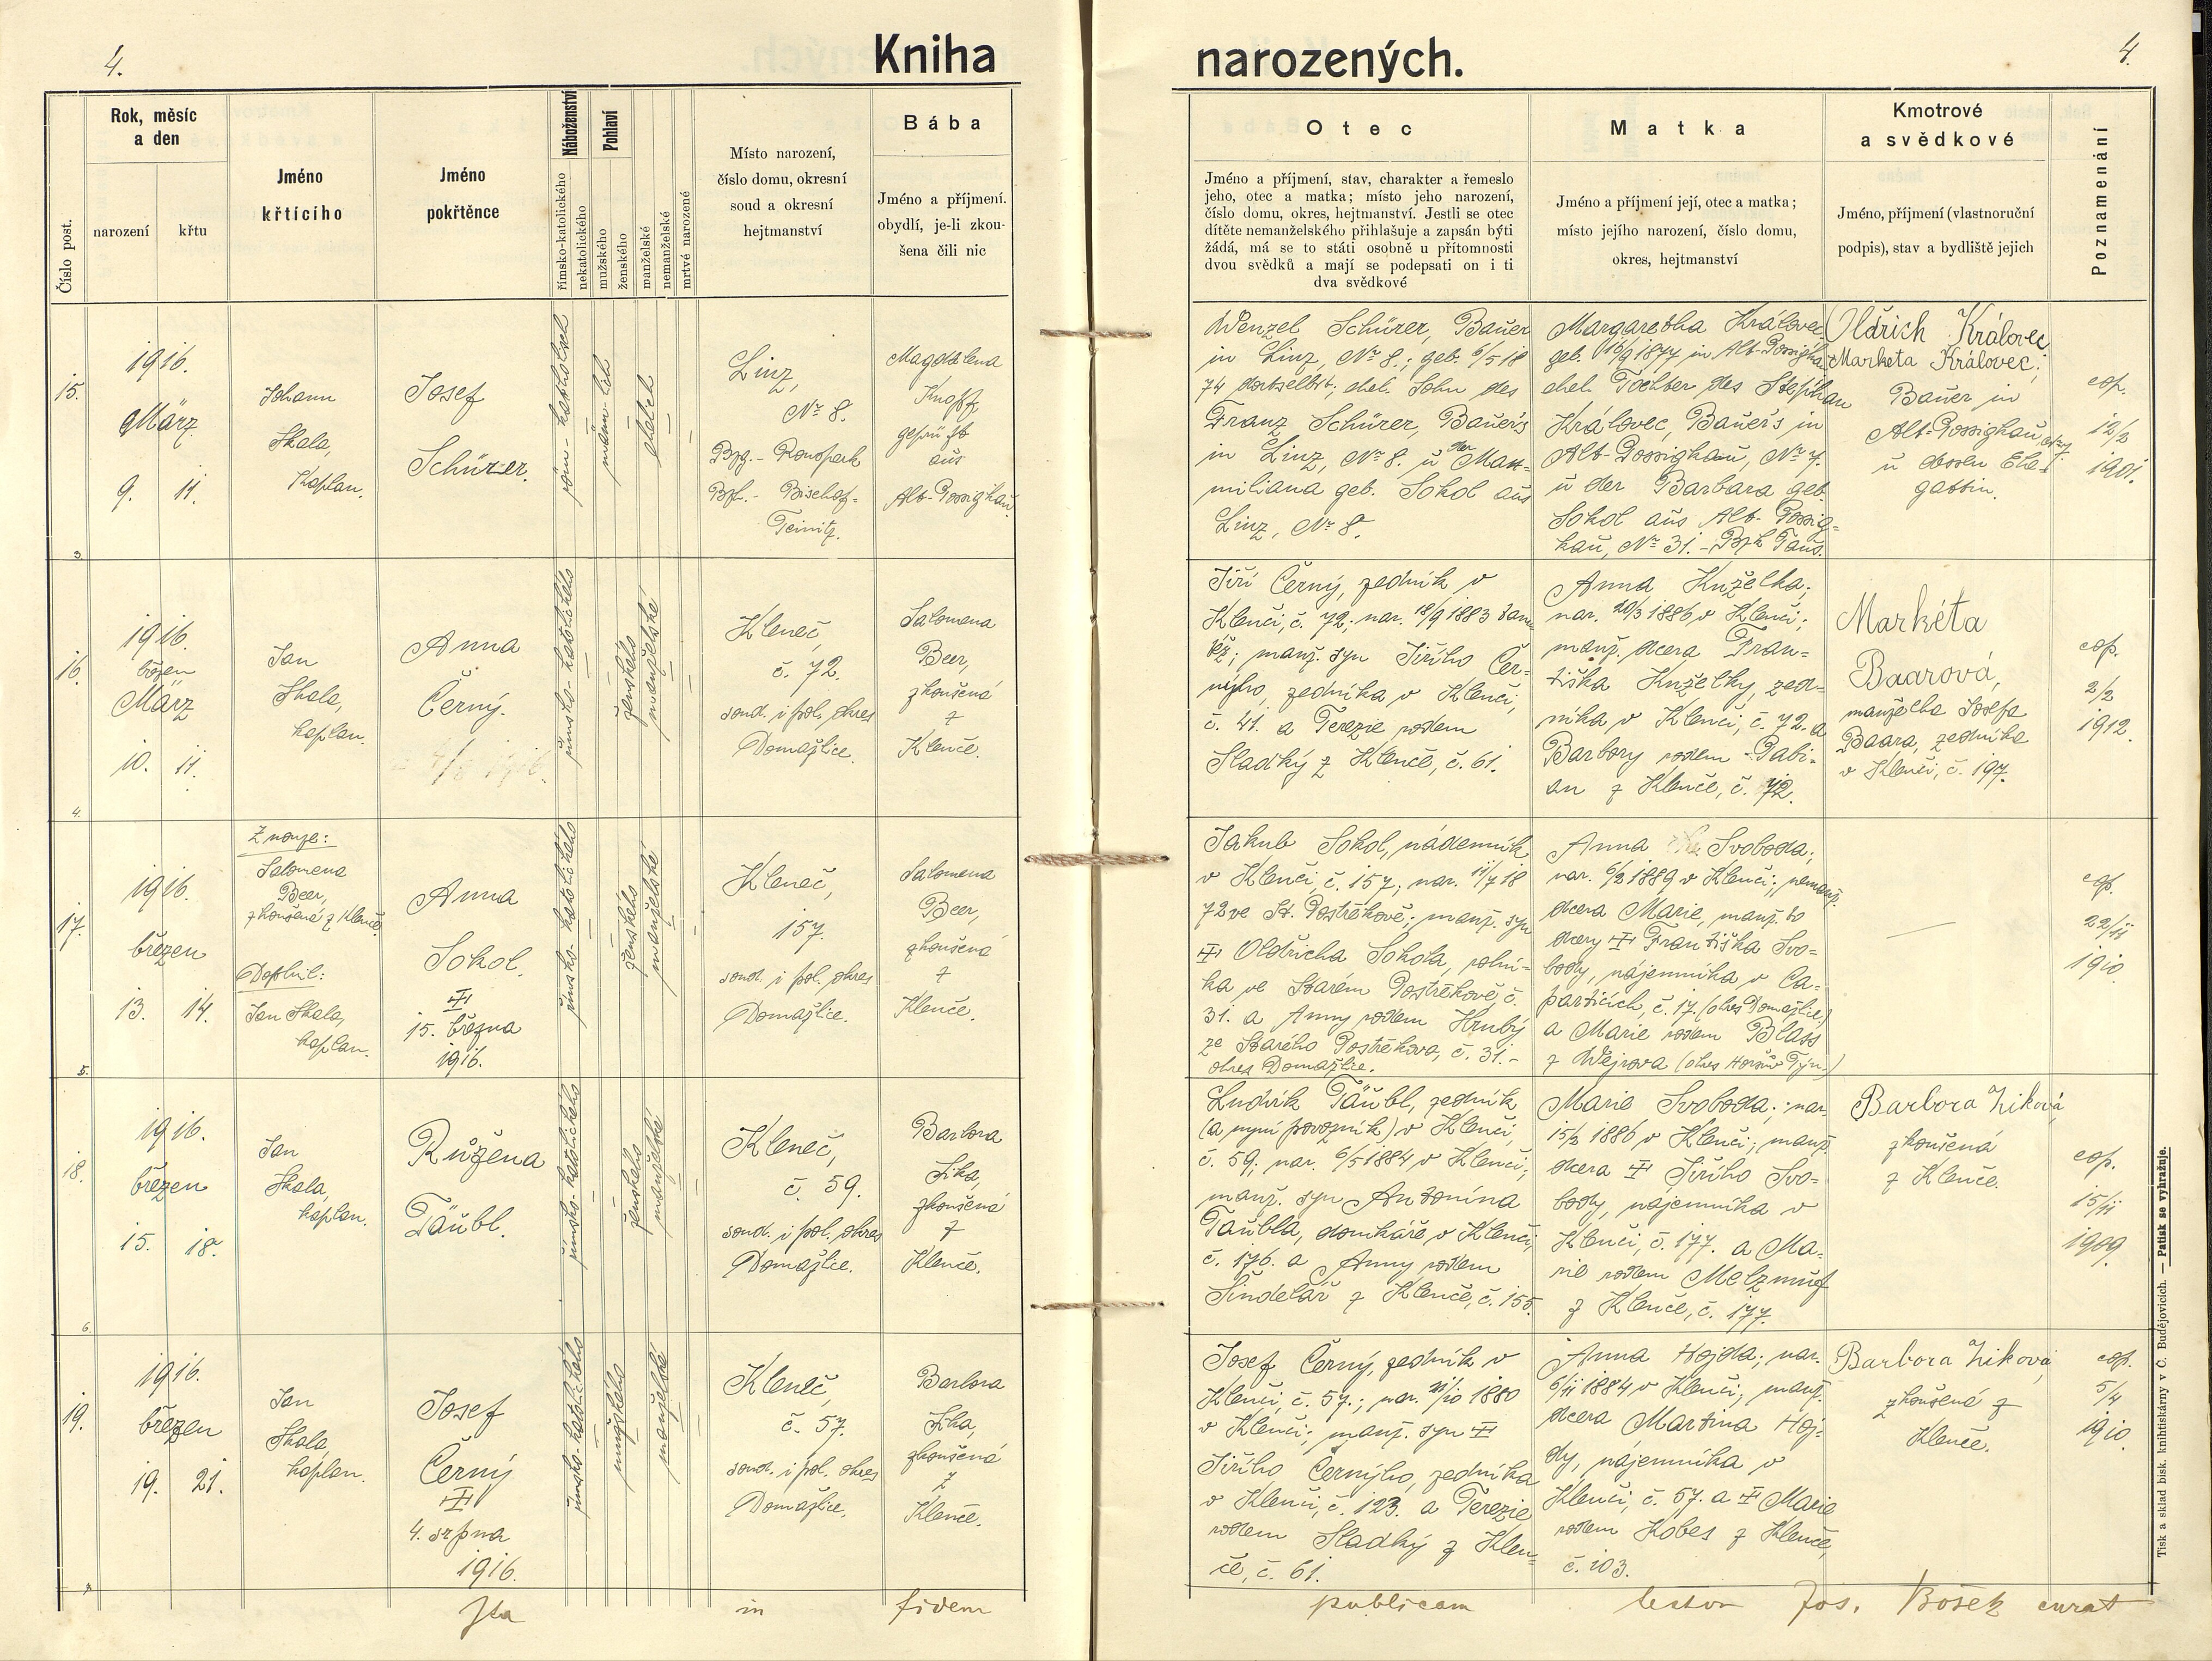 4.
Kniha
narozených.
4.
Číslo post.
Rok, měsíc
a den
narození
křtu
Jméno
křtícího
Jméno
pokřtěnce
Náboženství
římsko-katolického
nekatolického
Pohlaví
mužského
ženského
manželské
nemanželské
mrtvé narozené
Místo narození,
číslo domu, okresní
soud a okresní
hejtmanství
Bába
Jméno a příjmení.
obydlí, je-li zkou-
šena čili nic
Otec
Jméno a příjmení, stav, charakter a řemeslo
jeho, otec a matka; místo jeho narození,
číslo domu, okres, hejtmanství. Jestli se otec
dítěte nemanželského přihlašuje a zapsán býti
žádá, má se to státi osobně u přítomnosti
dvou svědků a mají se podepsati on i ti
dva svědkové
Matka
Jméno a příjmení její, otec a matka;
místo jejího narození, číslo domu,
okres, hejtmanství
Kmotrové
a svědkové
Jméno, příjmení (vlastnoruční
podpis), stav a bydliště jejich
Poznamenání
15.
1916.
März
9. 11.
Johann
Skala,
Kaplan.
Josef
Schürer.
röm-katholisch
männ-lich
ehelich
Linz,
Nr 8.
Bzg.- Ronsperk
Bzh.- Bischof-
Teinitz.
Magdalena
Knopf,
geprüft
aus
Alt-Possigkau.
Wenzel Schürer, Bauer
in Linz, Nr 8.; geb. 6/5 18
74 daselbst; ehel. Sohn des
Franz Schürer, Bauer's
in Linz, Nr 8. u der Maxi-
miliana geb. Sokol aus
Linz, Nr 8.
Margaretha Královec
geb. 16/9 1877 in Alt-Possigkau
ehel. Tochter des Stephan
Královec, Bauer's in
Alt-Possigkau, Nr 7.
u der Barbara geb.
Sokol aus Alt-Possig-
kau, Nr 31.- Bzh Taus.
Oldřich Královec,
Marketa Královec;
Bauer in
Alt-Possigkau,
u dessen Ehe-
gattin.
cop.
12/2
1901.
3.
16.
1916.
březen
März
10. 11.
Jan
Skala,
kaplan.
Anna
Černý.
římsko-katolického
ženského
manželské
Kleneč,
č. 72.
soud. i pol. okres
Domažlice.
Salomena
Beer,
zkoušená
z
Klenče.
Jiří Černý, zedník v
Klenči, č. 72; nar. 18/9 1883 tam
též; manž. syn Jiřího Čer-
nýho, zedníka v Klenči,
č. 41. a Terezie rodem
Sladký z Klenče, č. 61.
Anna Kuželka;
nar. 20/3 1886 v Klenči;
manž. dcera Fran-
tiška Kuželky, zed-
níka v Klenči, č. 72. a
Barbory rodem Pabi-
an z Klenče, č. 72.
Markéta
Baarová,
manželka Josefa
Baara, zedníka
v Klenči, č. 197.
cop.
2/2
1912.
4.
17.
1916.
březen
13. 14.
Z nouze:
Salomena
Beer,
zkoušená z Klenče
Doplnil:
Jan Skala,
kaplan.
Anna
Sokol.
15. března
1916.
římsko-katolického
ženského
manželské
Kleneč,
157.
soud. i pol. okres
Domažlice.
Salomena
Beer,
zkoušená
z
Klenče.
Jakub Sokol, nádenník
v Klenči, č. 157; nar. 11/7 18
72 ve St. Postřekově; manž. syn
Oldřicha Sokola, rolní-
ka ve Starém Postřekově, č.
31. a Anny rodem Hrubý
ze Starého Postřekova, č. 31.-
okres Domažlice.
Anna Svoboda;
nar. 6/2 1889 v Klenči; nemanž.
dcera Marie, manž. to
dcery Františka Svo-
body, nájemníka v Ca-
particích, č. 17. (okres Domažlice)
a Marie rodem Blass
z Wejrova (okres Horšův Týn.)
—
cop.
22/11
1910
5.
18.
1916.
březen
15. 18.
Jan
Skala,
kaplan.
Růžena
Täubl.
římsko-katolického
ženského
manželské
Kleneč,
č. 59.
soud. i pol. okres
Domažlice.
Barbora
Zika,
zkoušená
z
Klenče.
Ludvík Täubl, zedník
(a nyní povozník) v Klenči,
č. 59; nar. 6/5 1884 v Klenči;
manž. syn Antonína
Täubla, domkáře v Klenči,
č. 176. a Anny rodem
Šindelář z Klenče, č. 155.
Marie Svoboda; nar.
15/2 1886 v Klenči; manž.
dcera Jiřího Svo-
body, nájemníka v
Klenči, č. 177. a Ma-
rie rodem Melzmuf
z Klenče, č. 177.
Barbora Ziková,
zkoušená
z Klenče.
cop.
15/11
1909.
6.
19.
1916.
březen
19. 21.
Jan
Skala,
kaplan.
Josef
Černý
4. srpna
1916.
římsko-katolického
mužského
manželské
Kleneč,
č. 57.
soud. i pol. okres
Domažlice.
Barbora
Zika,
zkoušená
z
Klenče.
Josef Černý, zedník v
Klenči, č. 57.; nar. 21/10 1880
v Klenči; manž. syn
Jiřího Černýho, zedníka
v Klenči, č. 123. a Terezie
rodem Sladký z Klen-
če, č. 61.
Anna Hojda; nar.
6/11 1884 v Klenči; manž.
dcera Martina Hoj-
dy, nájemníka v
Klenči, č. 57. a Marie
rodem Kobes z Klenče,
č. 103.
Barbora Ziková,
zkoušená z
Klenče.
cop.
5/4
1910.
Ita in fidem publicam testor Jos. Bošek curat
Tisk a sklad bisk. knihtiskárny v Č. Budějovicích. — Patisk se vyhražuje.